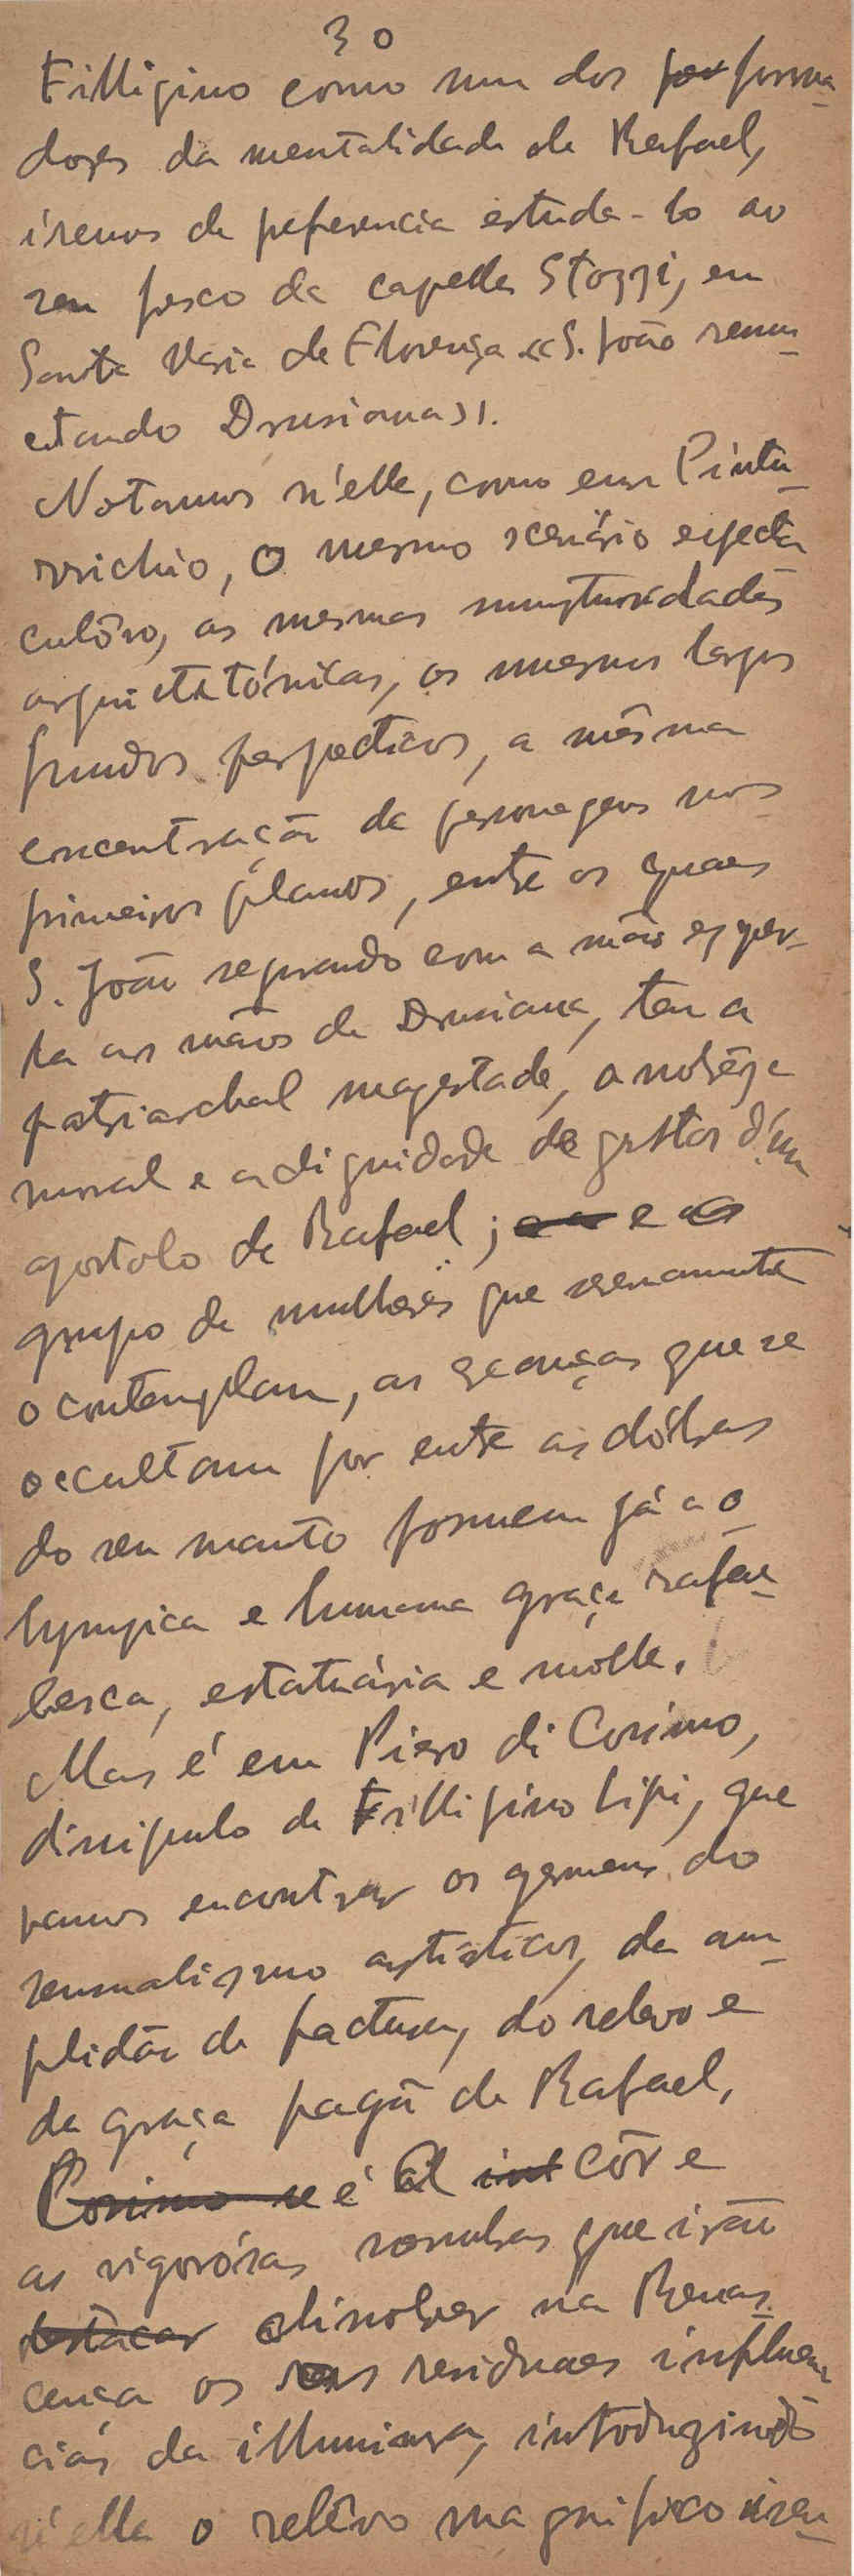 30
Fillipino como um dos for forma-
dores da mentalidade de Rafael,
iremos de preferencia estuda-lo ao
seu fresco da capella Stozzi, em
Santa Maria de Florença «S. João ressus-
citando Drusiana».
Notamos n'elle, como em Pintu-
rrichio, o mesmo scenário especta-
culôso, as mesmas sumptuosidades
arquitetónicas, os mesmos largos
fundos perspecticos, a mêsma
concentração de personagens nos
primeiros planos, entre os quaes
S. João segurando com a mão esquer-
da as mãos de Drusiana, tem a
patriarchal magestade, a nobrêza
moral e a dignidade de gestos d'um
apostolo de Rafael; e a e o
grupo de mulheres que serenamente
o contemplam, as creanças que se
occultam por entre as dóbras
do seu manto possuem já a o-
lympica e humana graça rafae-
lesca, estatuária e mólle.
Mas é em Piero di Cosimo,
discipulo de Fillipino Lipi, que
vamos encontrar os germens do
sensualismo artistico, da am-
plidão de factura, do relevo e
da graça pagã de Rafael,
Cosimo se é a int côr e
as vigorósas sombras que irão
destacar disolver na Renas-
cença os seus residuaes influen-
cias da illuminura, introduzindo
n'ella o relêvo magnifico